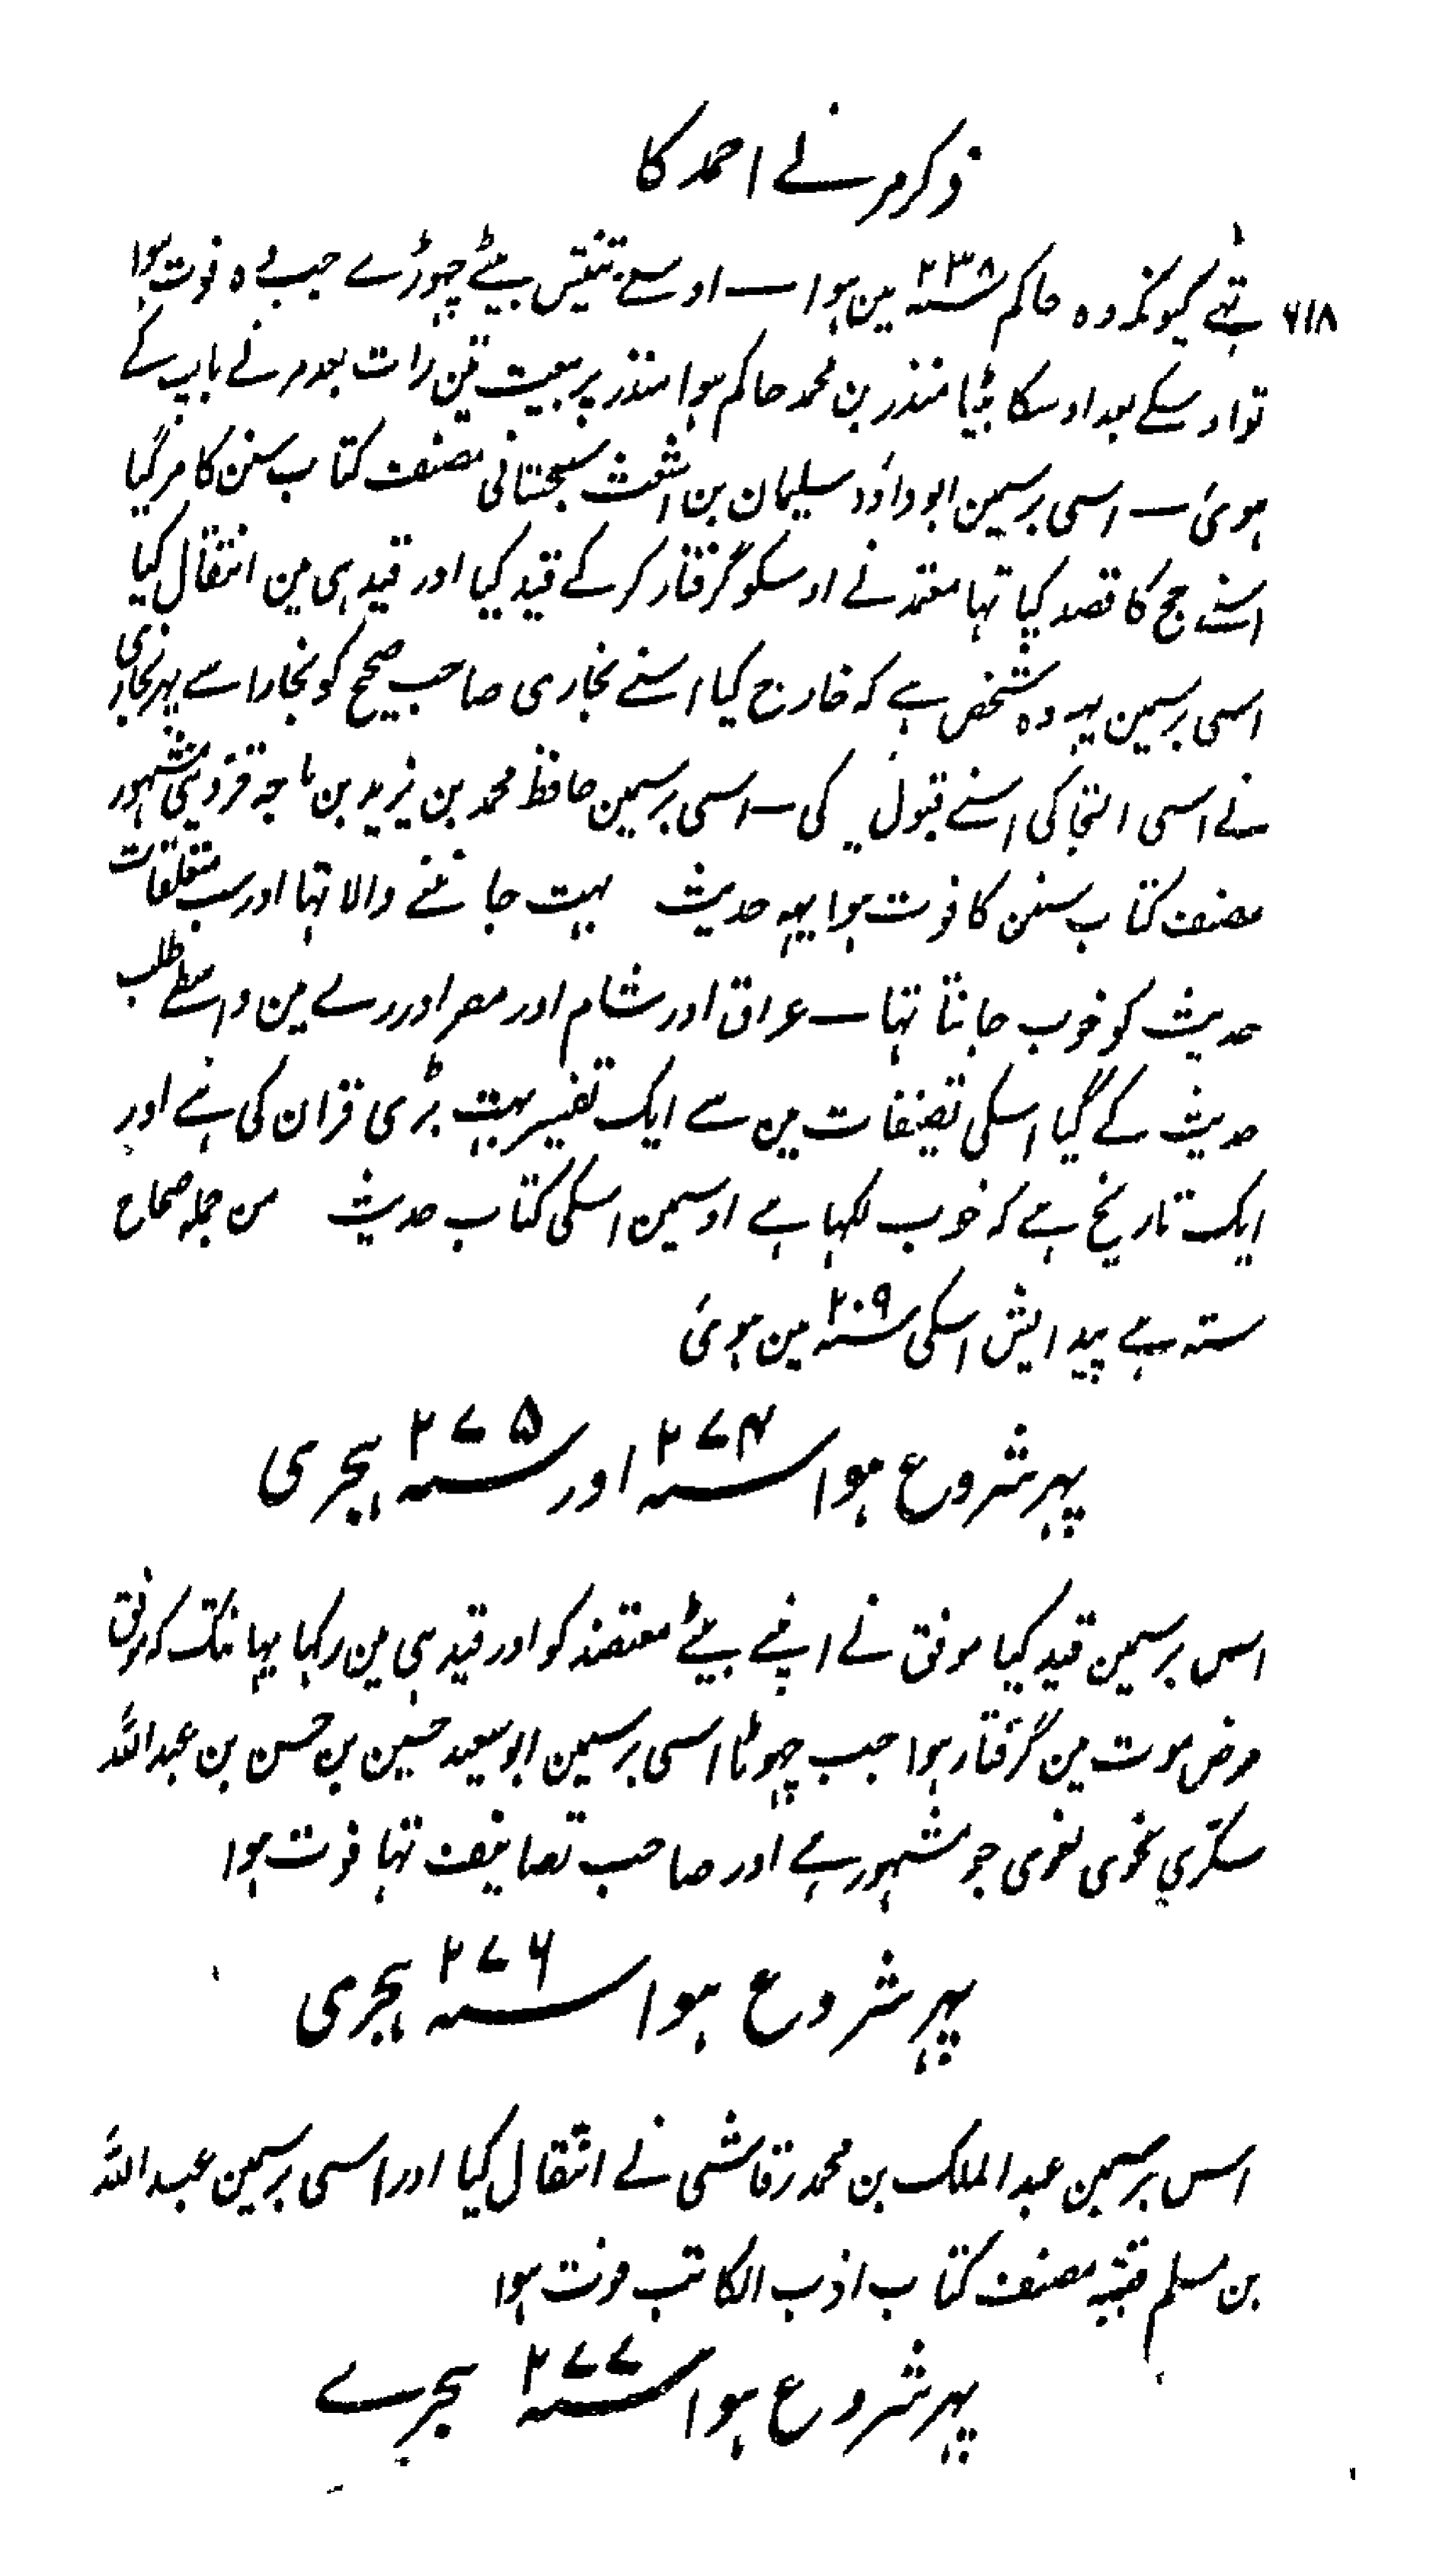 ذکر مرنے احمد کا
۶۱۸
تہے کیونکہ وہ حاکم ۲۳۸؁ مین ہوا — اوسنے تینتیس بیٹے چہوڑے جب وہ فوت ہوا
تو اوسکے بعد اوسکا بیٹیا منذر بن محمد حاکم ہوا منذر پر بیعت تین رات بعد مرنے باپ کے
ہوئ — اسی برسمین ابو داؤد سلیمان بن اشعث سجستانی مصنف کتاب سنن کا مرگیا
اسنے حج کا قصد کیا تہا معتمد نے اوسکو گرفتار کرکے قید کیا اور قید ہی مین انتقال کیا
اسی برسمین یہہ وہ شخص ہے کہ خارج کیا اسنے بخاری صاحب صحیح کو بخارا سے پہر بخاری
نے اسی التجا کی اسنے قبول کی — اسی برسمین حافظ محمد بن یزید بن ماجہ قزوینی مشہور
مصنف کتاب سنن کا فوت ہوا یہہ حدیث بہت جاننے والا تہا اور سب متعلقات
حدیث کو خوب جانتا تہا — عراق اور شام اور مصر اور رے مین واسطے طلب
حدیث کے گیا اسکی تصنیفات مین سے ایک تفسیر بہت بڑی قران کی ہے اور
ایک تاریخ ہے کہ خوب لکہا ہے اوسمین اسکی کتاب حدیث من جملہ صحاح
ستہ ہے پیدایش اسکی ۲۰۹؁ مین ہوئ
پہر شروع ہوا ۲۷۴؁ اور ۲۷۵؁ ہجری
اس برسمین قید کیا موفق نے اپنے بیٹے معتضد کو اور قید ہی مین رکہا یہانتک کہ موفق
مرض موت مین گرفتار ہوا جب چہوٹا اسی برسمین ابو سعید حسین بن حسن بن عبد اللہ
سکری نحوی لغوی جو مشہور ہے اور صاحب تصانیف تہا فوت ہوا
پہر شروع ہوا ۲۷۶؁ ہجری
اس برسمین عبد الملک بن محمد رقاشی نے انتقال کیا اور اسی برسمین عبد اللہ
بن مسلم قتیبہ مصنف کتاب اذب الکاتب فوت ہوا
پہر شروع ہوا ۲۷۷؁ ہجرے